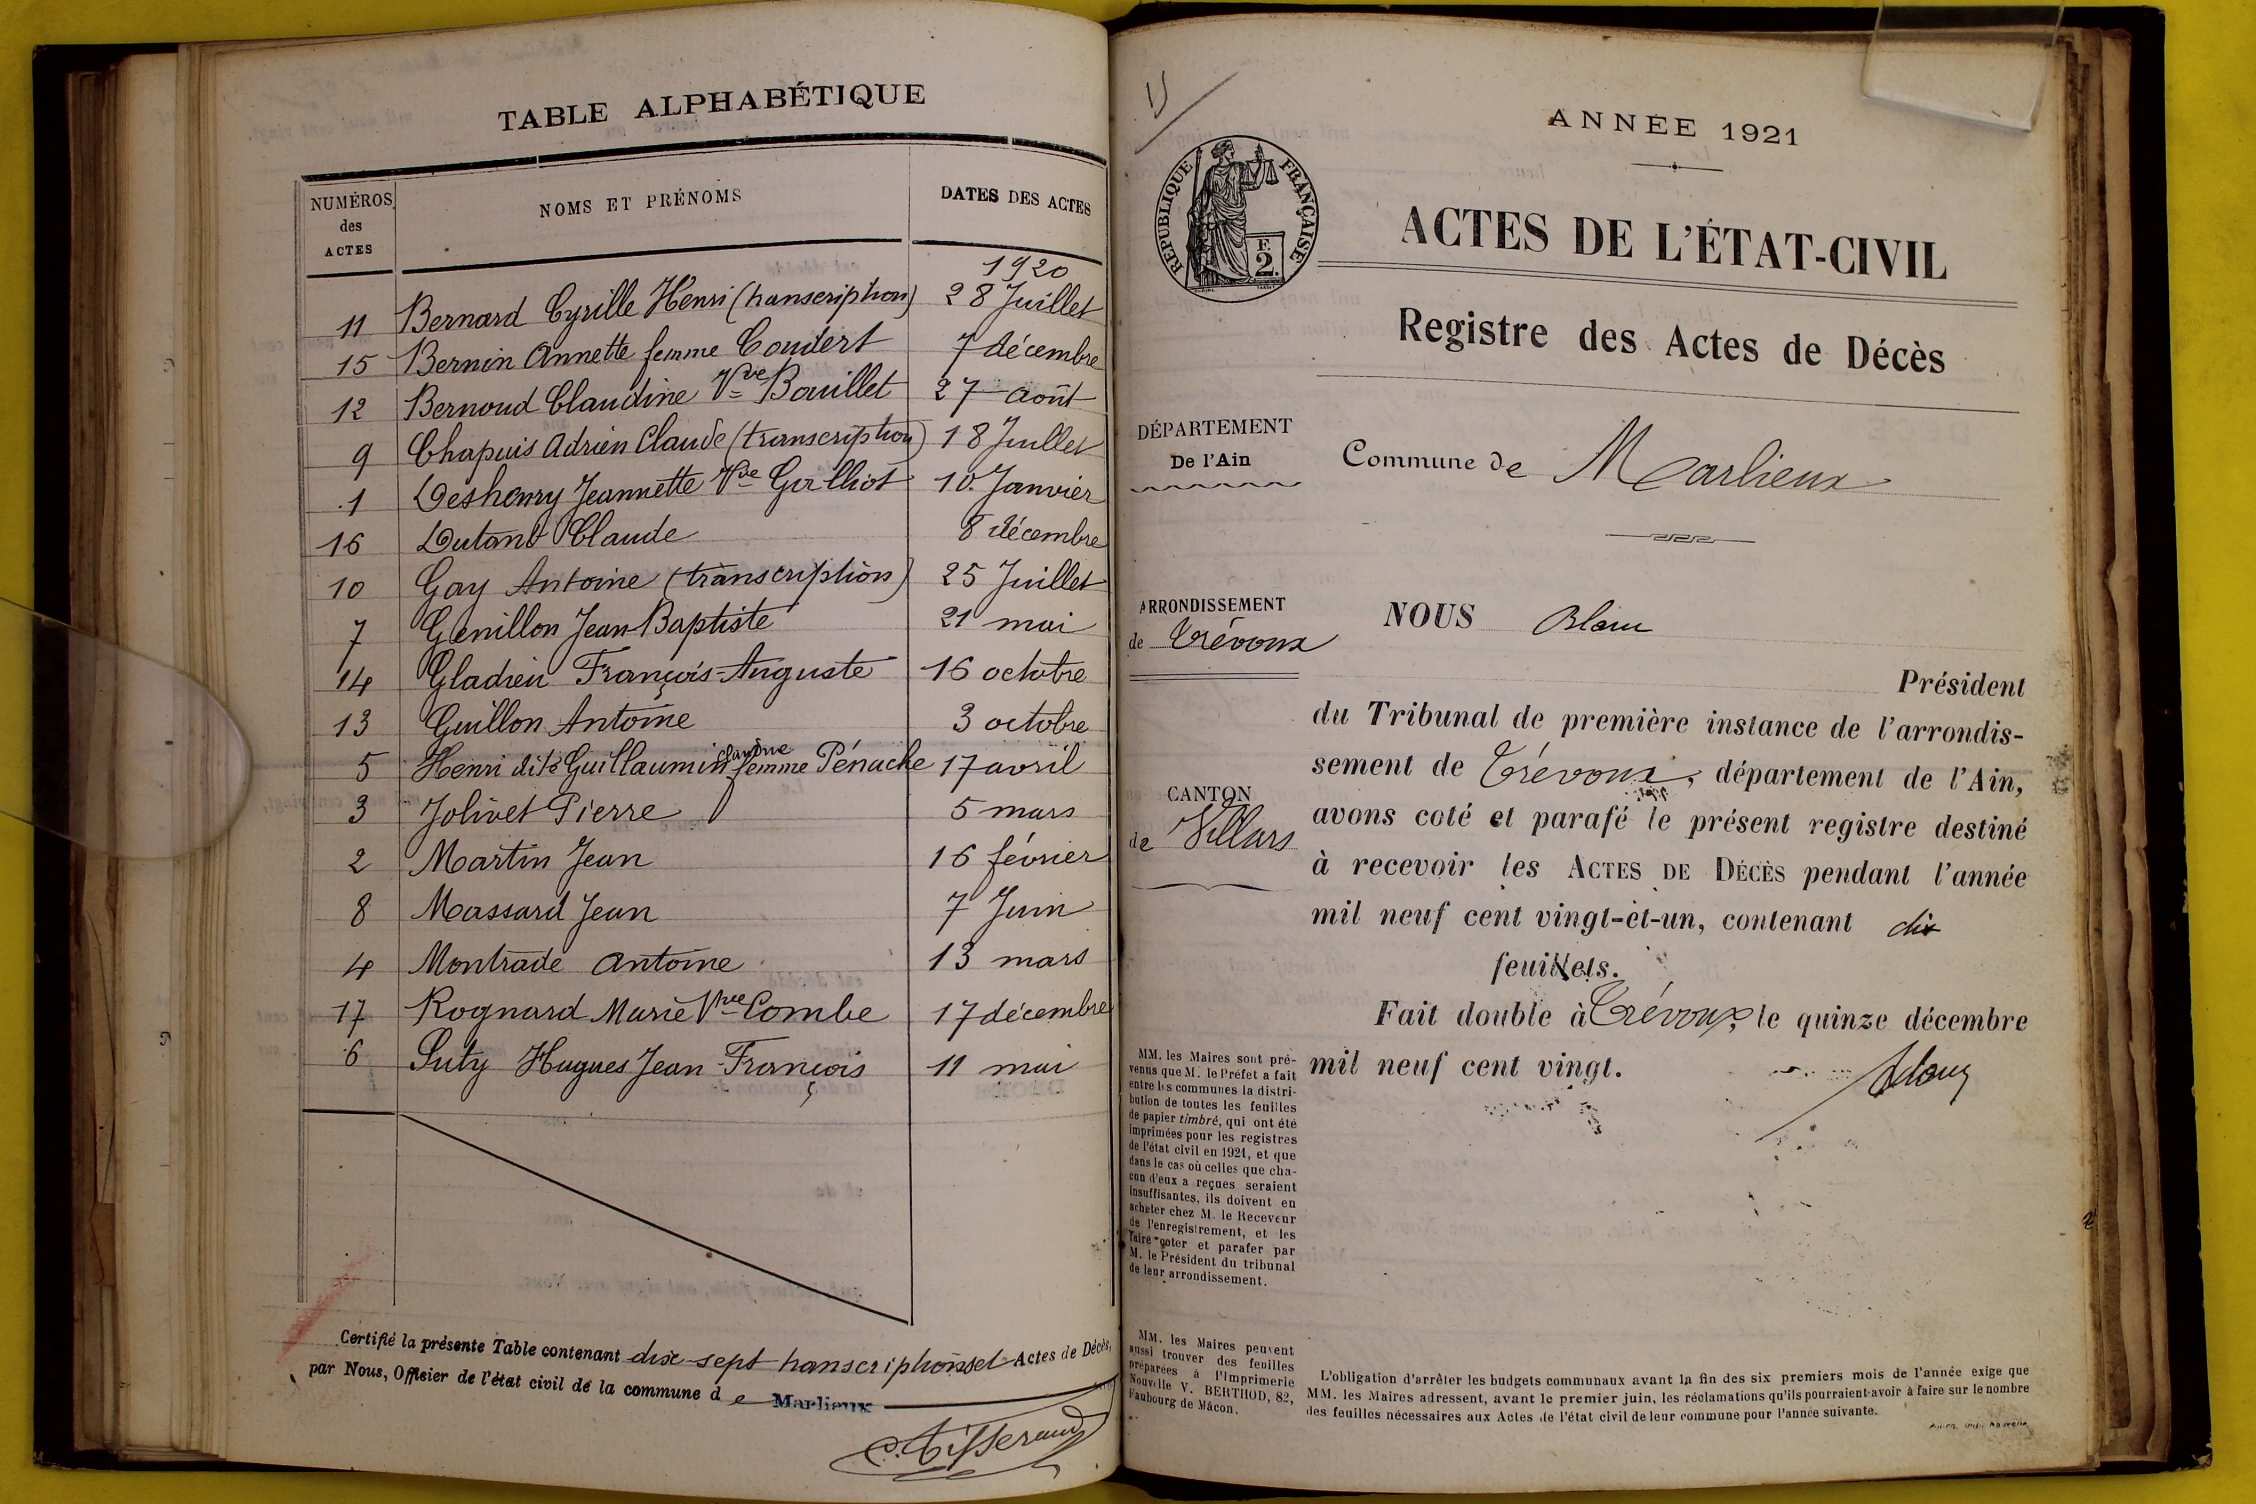 TABLE ALPHABÉTIQUE
NUMÉROS des ACTES
NOMS ET PRÉNOMS
DATES DES ACTES
1920
11 Bernard Cyrille Henri (transcription) 28 Juillet
15 Bernin Annette femme Coudert 7 décembre
12 Bernoud Claudine Vve Bouillet 27 août
9 Chapuis Adrien Claude (transcription) 18 Juillet
1 Deshenry Jeannette Vve Guilliot 10 Janvier
16 Dutant Claude 8 décembre
10 Gay Antoine (transcription) 25 Juillet
7 Genillon Jean Baptiste 21 mai
14 Gladien François-Auguste 16 octobre
13 Guillon Antoine 3 octobre
5 Henri dite Guillaumin Claudine femme Pénache 17 avril
3 Jolivet Pierre 5 mars
2 Martin Jean 16 février
8 Massard Jean 7 Juin
4 Montrade Antoine 13 mars
17 Rognard Marie Vve Combe 17 décembre
6 Suty Hugues Jean-François 11 mai
Certifié la présente Table contenant dix-sept transcriptions et Actes de Décès,
par Nous, Officier de l'état civil de la commune de Marlieux
C. Tisserand
ANNÉE 1921
RÉPUBLIQUE FRANÇAISE
F. 2.
ACTES DE L'ÉTAT-CIVIL
Registre des Actes de Décès
DÉPARTEMENT
De l'Ain
Commune de Marlieux
ARRONDISSEMENT
de Trévoux
NOUS Blanc
Président
du Tribunal de première instance de l'arrondis-
sement de Trévoux, département de l'Ain,
avons coté et parafé le présent registre destiné
à recevoir les ACTES DE DÉCÈS pendant l'année
mil neuf cent vingt-et-un, contenant dix
feuillets.
Fait double à Trévoux, le quinze décembre
mil neuf cent vingt.
Blanc
CANTON
de Villars
MM. les Maires sont pré-
venus que M. le Préfet a fait
entre les communes la distri-
bution de toutes les feuilles
de papier timbré, qui ont été
imprimées pour les registres
de l'état civil en 1921, et que
dans le cas où celles que cha-
cun d'eux a reçues seraient
insuffisantes, ils doivent en
acheter chez M. le Receveur
de l'enregistrement, et les
faire coter et parafer par
M. le Président du tribunal
de leur arrondissement.
MM. les Maires peuvent
aussi trouver des feuilles
préparées à l'Imprimerie
Nouvelle V. BERTHOD, 82,
Faubourg de Mâcon.
L'obligation d'arrêter les budgets communaux avant la fin des six premiers mois de l'année exige que
MM. les Maires adressent, avant le premier juin, les réclamations qu'ils pourraient avoir à faire sur le nombre
des feuilles nécessaires aux Actes de l'état civil de leur commune pour l'année suivante.